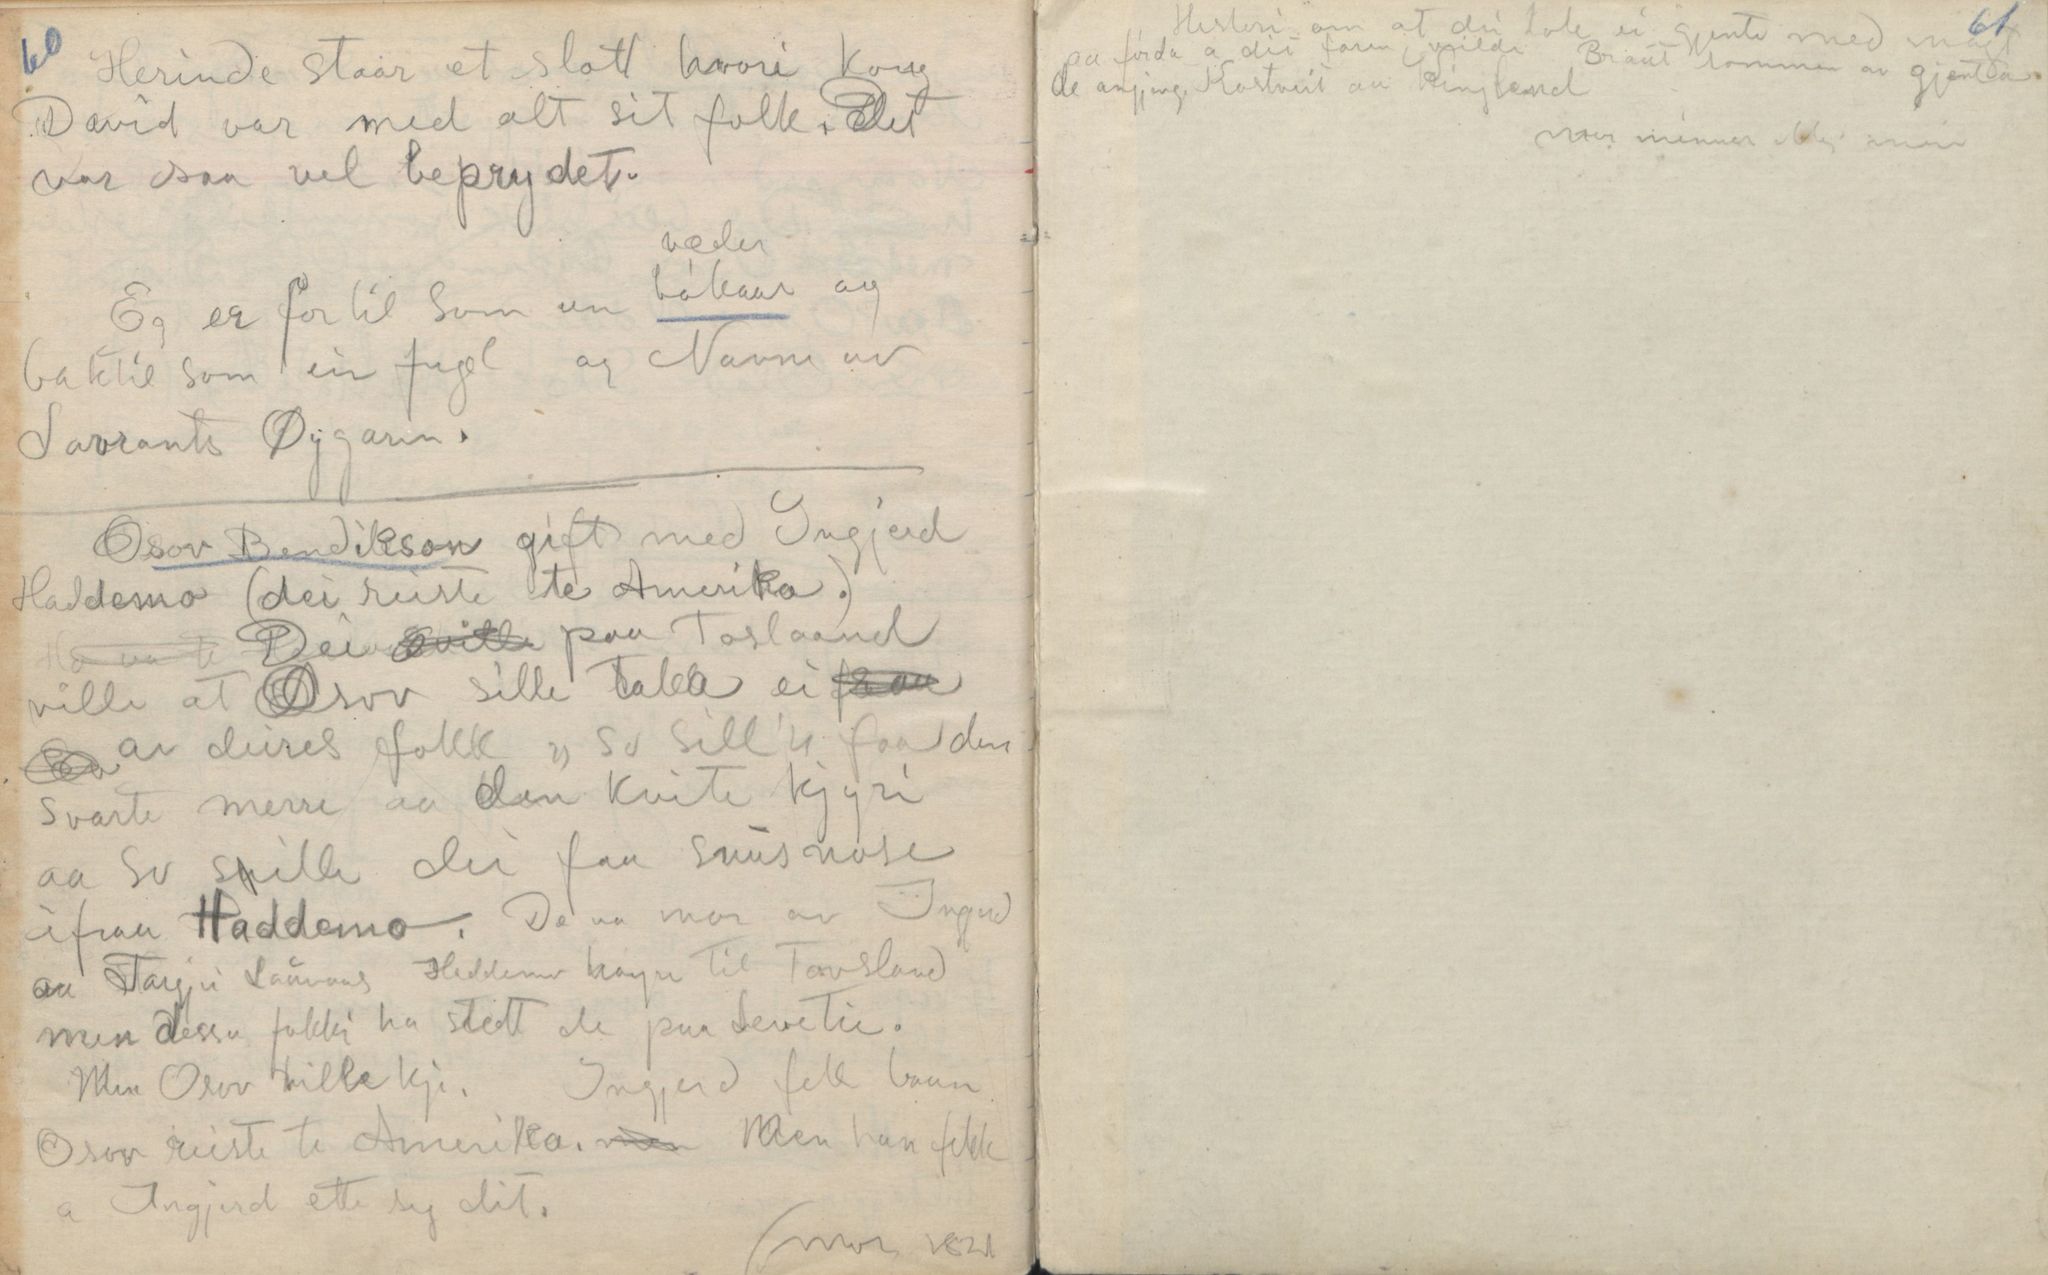 60
Herinde staar et slott hvori Kong
David var med alt sit folk. Det
var saa vel beprydet.
væder
Eg er fortil som un bókaar ag
baktil som ein fugl ag Navne uv
Lavrants Øygaren.
Osov Bendikson gift med Ingjerd
Haddemo (dei reiste te Amerika.)
Dei paa Toslaand
ville at Osov sille takka ei
av deires fokk, so sill'n faa den
svarte merre aa den kvite kjyri
aa so skille dei faa snusnose
ifraa Haddemo. De va mor av Ingerd
aa Targjei Haddemo til Tovsland
men dessa fokki ha stett de paa
Men Osovville kje. Ingjerd fekk baan
Osov reiste te Amerika. Men han fekk
a Ingjerd ette seg dit.
(mor
61
Histori om at dei tok ei gjente med magt
paa a dei faren vilde Braut sommen av gjenta
de angjeng
mor minner